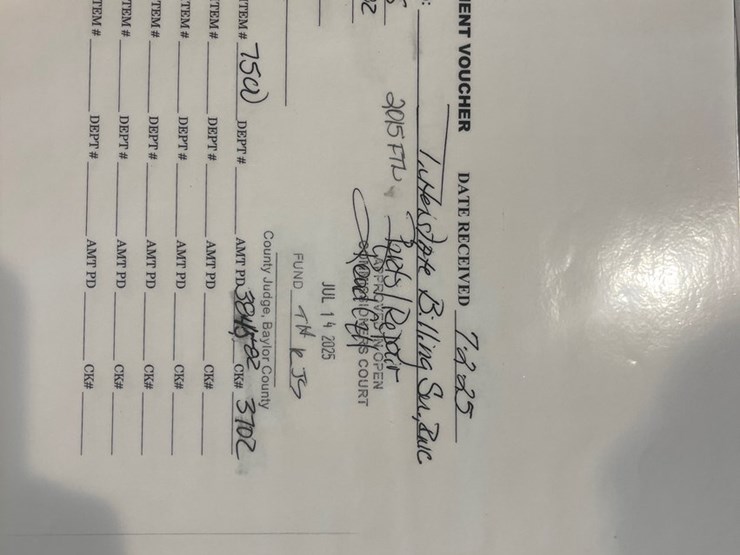 ENT VOUCHER DATE RECEIVED 7225
Interstate Billing Ser, Inc
2015 FTL Parts/Repair
APPROVED IN OPEN
COURT
JUL 14 2025
FUND
County Judge, Baylor County
ITEM # 7501 DEPT # AMT PD CK# 3702
TEM # DEPT # AMT PD CK#
TEM # DEPT # AMT PD CK#
TEM # DEPT # AMT PD CK#
TEM # DEPT # AMT PD CK#
TEM # DEPT # AMT PD CK#